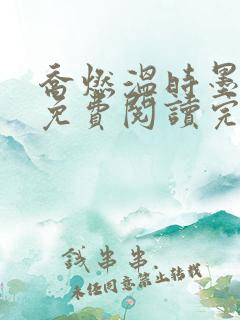 喬燃溫時墨
免費閱讀完
錢串串
未经同意禁止转载